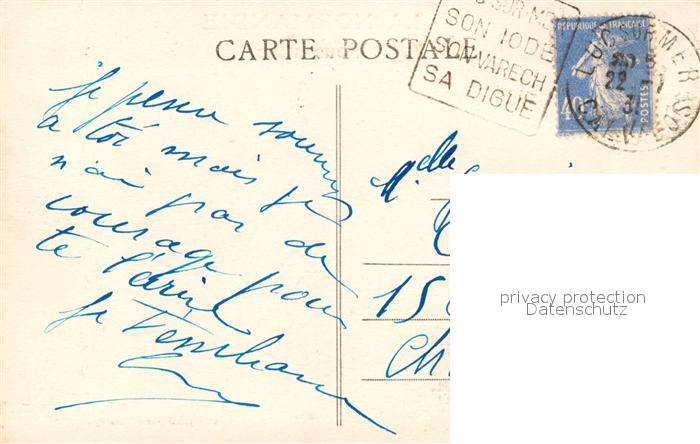 CARTE POSTALE
SUR-MER
SON IODE
SON VARECH
SA DIGUE
REPUBLIQUE FRANÇAISE
POSTES
SUR MER
22
CALVADOS
Je pense souvent
à toi mais je
n'ai pas de
courage pour
t'écrire
Je t'embrasse
Melle
15
Ch
privacy protection
Datenschutz